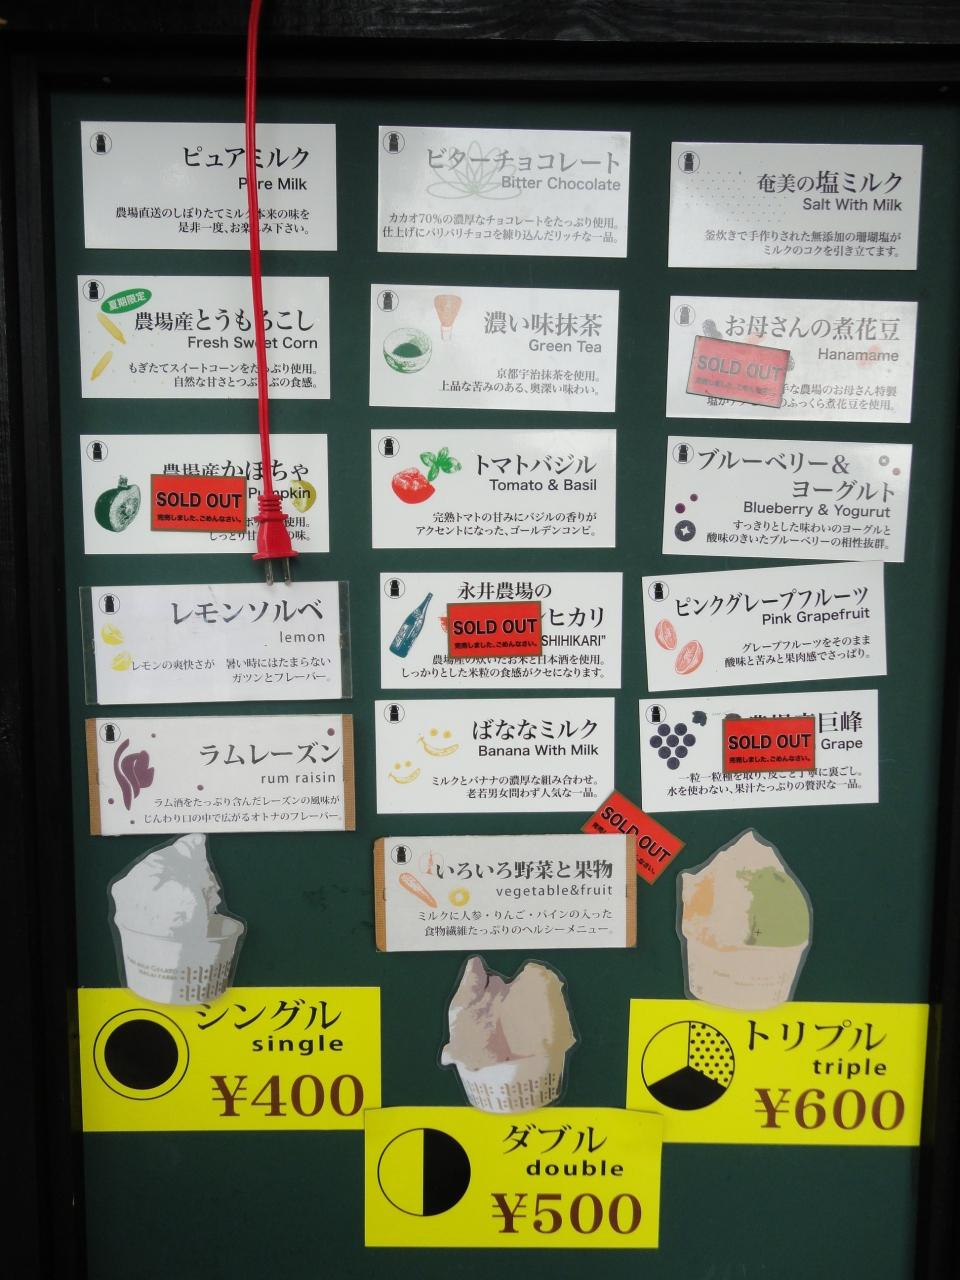 ピュアミルク
Pure Milk
農場直送のしぼりたてミルク本来の味を
是非一度、お楽しみ下さい。
ビターチョコレート
Bitter Chocolate
カカオ70%の濃厚なチョコレートをたっぷり使用。
仕上げにパリパリチョコを練り込んだリッチな一品。
奄美の塩ミルク
Salt With Milk
釜炊きで手作りされた無添加の珊瑚塩が
ミルクのコクを引き立てます。
夏期限定
農場産とうもろこし
Fresh Sweet Corn
もぎたてスイートコーンをたっぷり使用。
自然な甘さとつぶつぶの食感。
濃い味抹茶
Green Tea
京都宇治抹茶を使用。
上品な苦みのある、奥深い味わい。
お母さんの煮花豆
Hanamame
SOLD OUT
完売しました、ごめんなさい。
手な農場のお母さん特製
のふっくら煮花豆を使用。
農場産かぼちゃ
Pumpkin
SOLD OUT
完売しました、ごめんなさい。
使用。
しっとり甘 の味。
トマトバジル
Tomato & Basil
完熟トマトの甘みにバジルの香りが
アクセントになった、ゴールデンコンビ。
ブルーベリー&
ヨーグルト
Blueberry & Yogurut
すっきりとした味わいのヨーグルと
酸味のきいたブルーベリーの相性抜群。
レモンソルベ
lemon
レモンの爽快さが 暑い時にはたまらない
ガツンとフレーバー。
永井農場の
ヒカリ
SHIHIKARI"
SOLD OUT
完売しました、ごめんなさい。
農場産の炊いたお米と日本酒を使用。
しっかりとした米粒の食感がクセになります。
ピンクグレープフルーツ
Pink Grapefruit
グレープフルーツをそのまま
酸味と苦みと果肉感でさっぱり。
ラムレーズン
rum raisin
ラム酒をたっぷり含んだレーズンの風味が
じんわり口の中で広がるオトナのフレーバー。
ばななミルク
Banana With Milk
ミルクとバナナの濃厚な組み合わせ。
老若男女問わず人気な一品。
巨峰
Grape
SOLD OUT
完売しました、ごめんなさい。
一粒一粒種を取り、皮ごと丁寧に裏ごし。
水を使わない、果汁たっぷりの贅沢な一品。
SOLD OUT
いろいろ野菜と果物
vegetable&fruit
ミルクに人参・りんご・パインの入った
食物繊維たっぷりのヘルシーメニュー。
シングル
single
¥400
ダブル
double
¥500
トリプル
triple
¥600